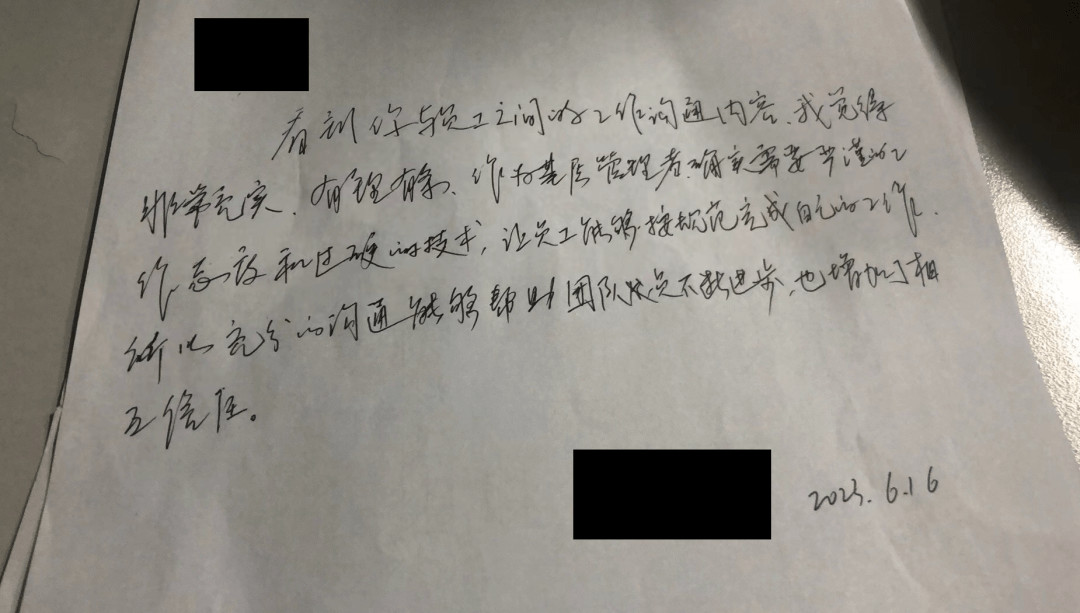 看到你与员工之间的工作沟通内容、我觉得
非常充实、有理有条、作为基层管理者、确实需要严谨的工
作态度和过硬的技术，让员工能够按规范完成自己的工作、
所以充分的沟通能够帮助团队成员不断进步、也增加了相
互信任。
2023.6.16